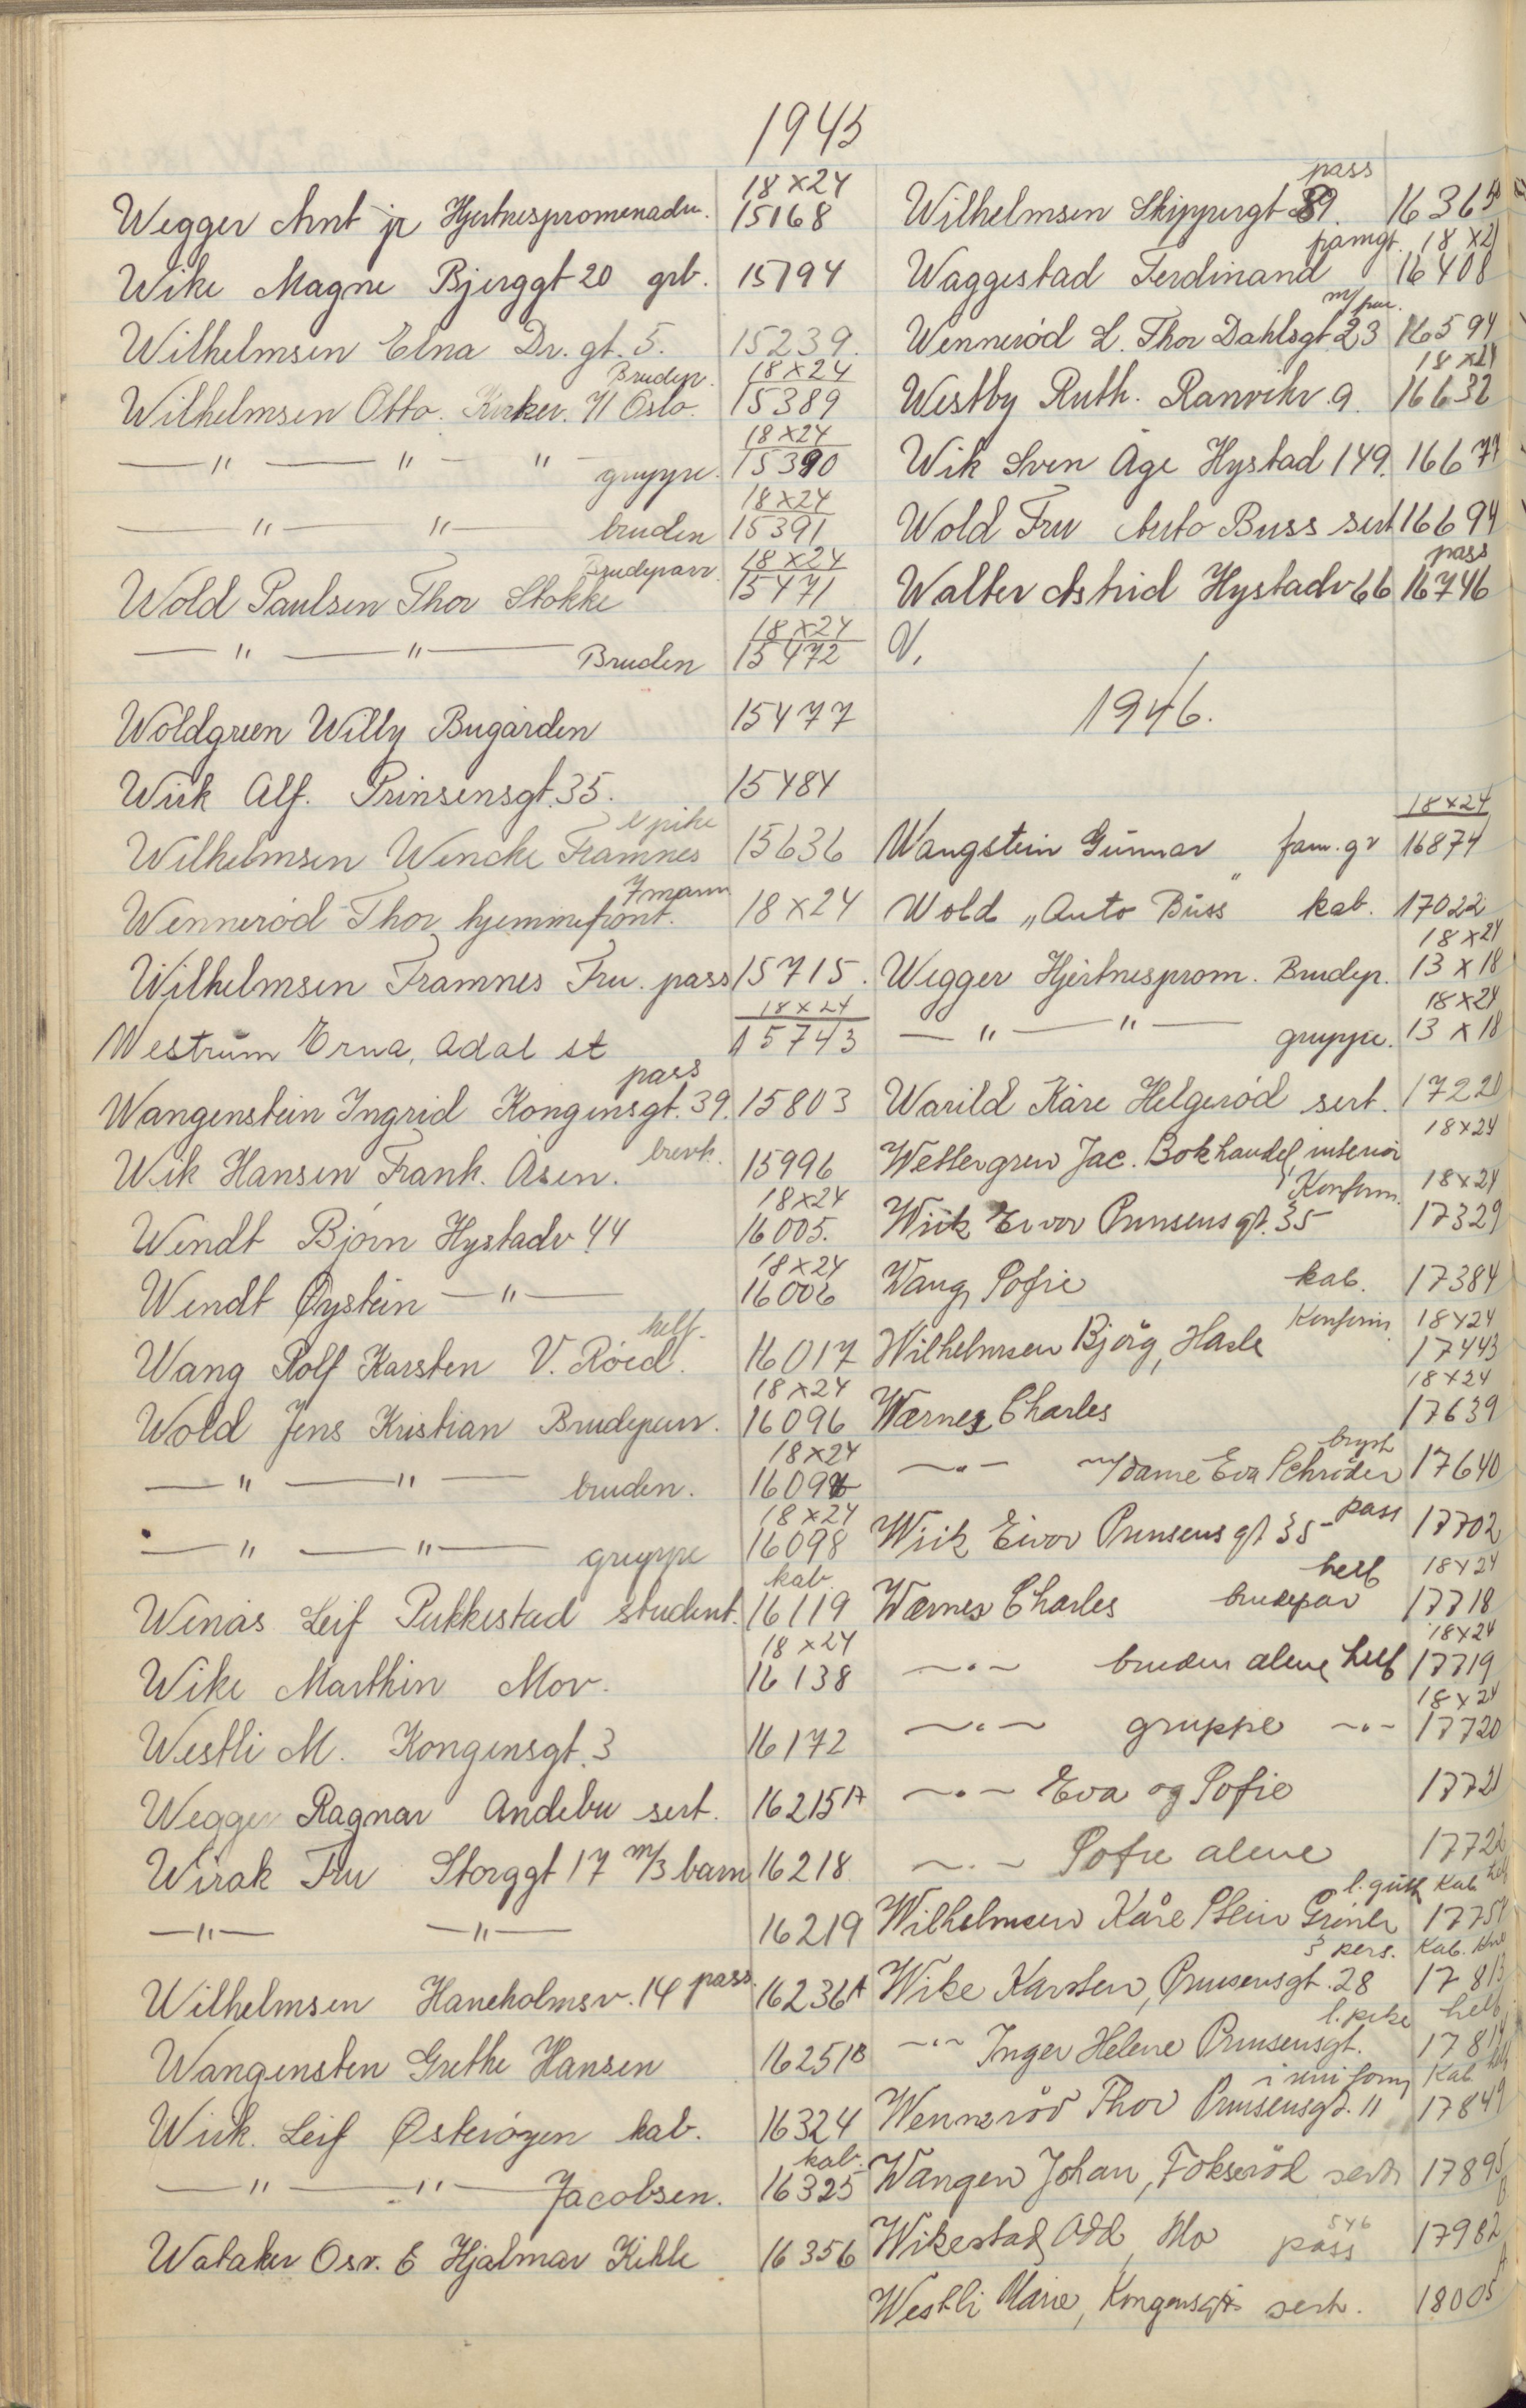 1945
18 x 24
Wegger Arnt jr Hjertnespromenaden. 15168
Wike Magne Bjerggt 20 grb. 15194
Wilhelmsen Elna Dr. gt. 5. 15239.
Brudep. 18 x 24
Wilhelmsen Otto. Kirkev. 71 Oslo. 15389
18 x 24
— " — " — " — gruppe. 15390
18 x 24
— " — " — bruden 15391
Brudeparr. 18 x 24
Wold Paulsen Thor Stokke 15471
18 x 24
— " — " — Bruden 15472
Woldgreen Willy Bugården 15477
Wiik Alf. Prinsensgt. 35. 15484
l pike
Wilhelmsen Wencke Framnes 15636
7 mann
Wennerød Thor hjemmefront. 18 x 24
Wilhelmsen Framnes Fru. pass 15715.
18 x 24
Westrum Erna, Adal st 15743
pass
Wangenstein Ingrid Kongensgt. 39. 15803
brevk.
Wik Hansen Frank. Åsen. 15996
18 x 24
Wendt Bjørn Hystadv 44 16005.
18 x 24
Wendt Øystein — " — 16006
helf.
Wang Rolf Karsten V. Røed. 16017
18 x 24
Wold Jens Kristian Brudeparr. 16096
18 x 24
— " — " — bruden. 16097
18 x 24
— " — " — gruppe 16098
kab.
Winås Leif Pukkestad student. 16119
18 x 24
Wike Marthin Mov. 16138
Westli M. Kongensgt. 3 16172
Wegger Ragnar Andebu sert. 16215A
Wirak Fru Storggt 17 m/3 barn 16218
— " — — " — 16219
Wilhelmsen Haneholmsv. 14 pass. 16236A
Wangensten Grethe Hansen 16251B
Wiik. Leif Østerøyen kab. 16324
kab.
— " — " — Jacobsen. 16325
Wataker Osv. E Hjalmar Kihle 16356
pass
Wilhelmsen Skippergt 89. 16365
famgr. 18 x 24
Waggestad Ferdinand 16408
Wennerød L. Thor Dahlsgt 23 16594
18 x 24
Westby Ruth. Ranvikv. 9. 16632
Wik Sven Åge Hystad 149. 16677
Wold Fru Auto Buss sert 16694
pass
Walter Astrid Hystadv 66 16746
V.
1946.
18 x 24
Wangstein Gunnar fam. gr 16874
Wold „Auto Buss" kab. 17022
18 x 24
Wegger Hjertnesprom. Brudep. 13 x 18
18 x 24
— " — " — gruppe. 13 x 18
Warild Kåre Helgerød sert. 17220
18 x 24
Wettergren Jac. Bokhandel, interiør
Konform. 18 x 24
Wiik Eivor Prinsensgt. 35 17329
Wang Sofie kab. 17384
Konform 18 x 24
Wilhelmsen Bjørg, Hasle 17443
18 x 24
Wærnes Charles 17639
bryst
— " — m/dame Eva Schrøder 17640
Wiik Eivor Prinsensgt 35 pass 17702
helf 18 x 24
Wærnes Charles brudepar 17718
18 x 24
— " — bruden alene helf 17719
18 x 24
— " — gruppe — " — 17720
— " — Eva og Sofie 17721
— " — Sofie alene 17722
l. gutt kab helf
Wilhelmsen Kåre Stein 1775
3 pers. kab.
Wike Karsten, Prinsensgt. 28 17813
l. pike helf
— " — Inger Helene Prinsensgt. 17814
i uniform kab
Wennerød Thor Prinsensgt. 11 17849
Wangen Johan, Fokserød sert 17895
546
Wikestad Odd, Mo pass 17982
Westli Marie, Kongensgt sert. 18005